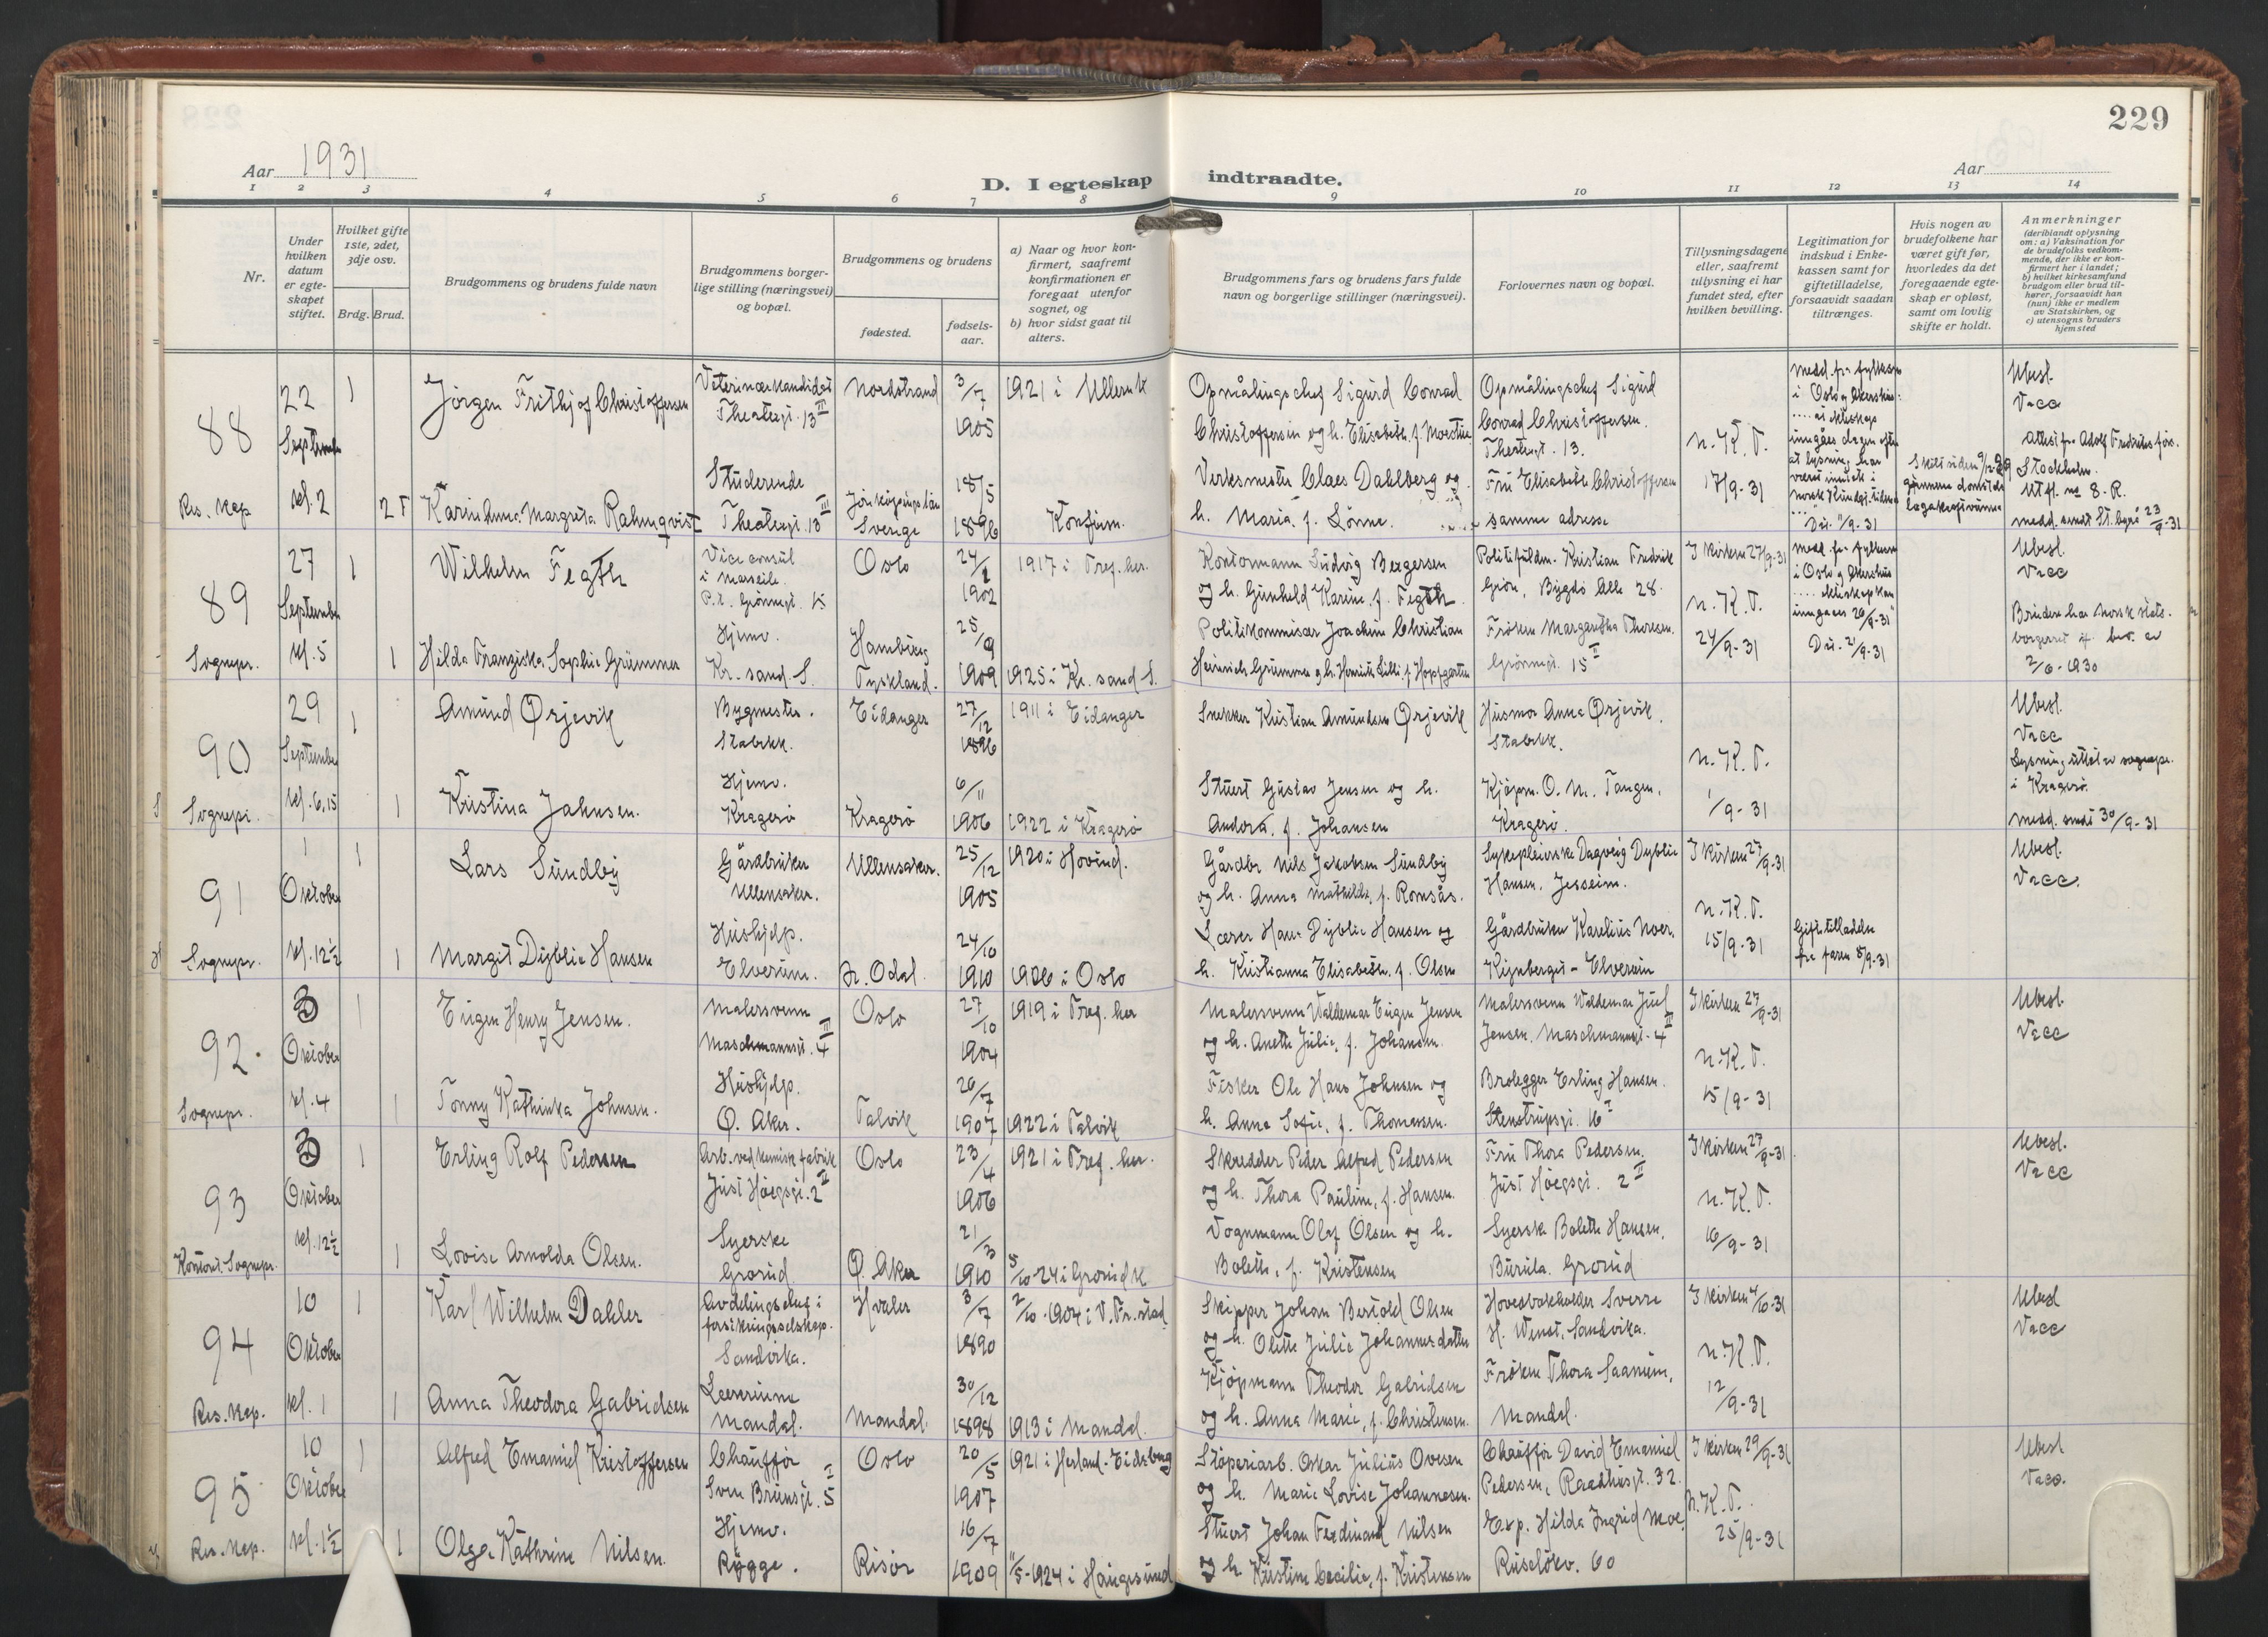 229
Aar 1931
D. I egteskap indtraadte.
Aar
1 2 3 4 5 6 7 8 9 10 11 12 13 14
Nr.
Under hvilken datum er egteskapet stiftet.
Hvilket gifte 1ste, 2det, 3dje osv.
Brdg. Brud.
Brudgommens og brudens fulde navn
Brudgommens borgerlige stilling (næringsvei) og bopæl.
Brudgommens og brudens
fødested.
fødselsaar.
a) Naar og hvor konfirmert, saafremt konfirmationen er foregaat utenfor sognet, og
b) hvor sidst gaat til alters.
Brudgommens fars og brudens fars fulde navn og borgerlige stillinger (næringsvei).
Forlovernes navn og bopæl.
Tillysningsdagene eller, saafremt tillysning ei har fundet sted, efter hvilken bevilling.
Legitimation for indskud i Enkekassen samt for giftetilladelse, forsaavidt saadan tiltrænges.
Hvis nogen av brudefolkene har været gift før, hvorledes da det foregaaende egteskap er opløst, samt om lovlig skifte er holdt.
Anmerkninger (deriblandt oplysning om: a) Vaksination for de brudefolks vedkommende, der ikke er konfirmert her i landet; b) hvilket kirkesamfund brudgom eller brud tilhører, forsaavidt han (hun) ikke er medlem av Statskirken, og c) utensogns bruders hjemsted
88 22 September kl. 2 Res. Kap
1 Jörgen Frithjof Christoffersen Veterinærkandidat Theatergt. 13 III Nordstrand 3/7 1905 1921 i Ullern k
Opmålingschef Sigurd Conrad Christoffersen og h. Elisabeth f.
Opmålingschef Sigurd Conrad Christoffersen. Theatergt. 13.
N.K.T. 17/9-31
Ubesl. Vacc
2 F Karin Anna Margreta Rahmqvist Studerende Theatergt. 13 III Jönköpings län Sverige 18/5 1896 Konfirm.
Verksmester Claes Dahlberg og h. Maria f. Lönne.
Fru Elisabeth Christoffersen samme adresse
Attest fra Adolf Fredriks förs. Stockholm.
89 27 September kl. 5 Sognepr.
1 Wilhelm Fegth Vicekonsul i Marseille. Oslo 24/1 1902 1917 i Tref. her.
Kontormann Ludvig Bergersen og h. Gunhild Karine f. Fegth.
Politifuldm. Kristian Fredrik Grön, Bygdö Alle 28.
I kirken 27/9-31 N.K.T. 24/9-31
Ubesl. Vacc
1 Hilda Franziska Sophie Grümmer Hjemv. Kr.sand. S. Hamburg Tyskland. 25/9 1909 1925 i Kr.sand S.
Politikommisær Joachim Christian Heinrich Grümmer
Fröken Margaretha Thoresen. Grönnegt. 15 II
90 29 September kl. 6,15 Sognepr.
1 Amund Ørjevik Bygmester. Stabekk. Eidanger 27/12 1896 1911 i Eidanger
Snekker Kristian Amundsen Ørjevik
Husmor Anna Ørjevik. Stabekk.
N.K.T. 1/9-31
Ubesl. Vacc
1 Kristina Jahnsen. Hjemv. Kragerö Kragerö 6/11 1906 1922 i Kragerö
Stuert Gustav Jensen og h. Andora, f. Johansen
Kjöpm. O. M. Tangen, Kragerö.
medd. sendt 30/9-31
91 1 Oktober kl. 12½ Sognepr.
1 Lars Sundby Gårdbruker Ullensaker. Ullensaker. 25/12 1905 1920 i Hovind.
Gårdbr Nils Jakobsen Sundby og h. Anna Mathilde, f. Romsås.
Sykepleierske Dagveig Dyblie Hansen. Jessheim.
I kirken 27/9-31 N.K.T. 15/9-31
Ubesl. Vacc.
1 Margit Dyblie Hansen Hushjelp. Elverum. N. Odal. 24/10 1910 1926 i Oslo
Lærer Hans Dyblie Hansen og h. Kristianna Elisabeth, f. Olsen
Gårdbruker Karelius Noer. Elverum
Gift.tilladelse fra faren 8/9-31
92. 3 Oktober kl. 4 Sognepr.
1 Eugen Henry Jensen. Malersvenn Maschmannsgt. 4 III Oslo 27/10 1904 1919 i Tref. her
Malersvenn Valdemar Eugen Jensen og h. Anette Julie, f. Johansen.
Malersvenn Waldemar Juel Jensen. Maschmannsgt. 4 III
I kirken 27/9-31 N.K.T. 15/9-31
Ubesl. Vacc
1 Tonny Kathinka Johnsen. Hushjelp. Ø. Aker. Talvik 26/7 1907 1922 i Talvik
Fisker Ole Hans Johnsen og h. Anna Sofie, f. Thomassen.
Brolegger Erling Hansen. Stenstrupsgt. 16 I
93 3 Oktober kl. 12½ Konst. Sognepr.
1 Erling Rolf Pedersen Arb. ved kemisk fabrik Just Høegsgt. 2 II Oslo 23/4 1906 1921 i Tref. her.
Skredder Peder Alfred Pedersen og h. Thora Pauline, f. Hansen.
Fru Thora Pedersen. Just Høegsgt. 2 II
I kirken 27/9-31. N.K.T. 16/9-31
Ubesl. Vacc
1 Lovise Arnolda Olsen. Syerske Grorud Ø. Aker 21/3 1910 5/10-24 i Grorud k
Vognmann Olaf Olsen og h. Bolette, f. Kristensen
Syerske Bolette Hansen, Grorud
94 10 Oktober kl. 1 Res. Kap.
1 Karl Wilhelm Dahler Avdelingschef i forsikringsselskap. Sandvika. Hvaler 3/7 1890 2/10-1904 i V. Fr.stad
Skipper Johan Bertold Olsen og h. Olette Julie Johannesdatter
Hovedbokholder Sverre H. Wenst, Sandvika.
I kirken 4/10-31 N.K.T. 12/9-31
Ubesl Vacc
1 Anna Theodora Gabrielsen Lærerinne Mandal. Mandal. 30/12 1898 1913 i Mandal.
Kjöpmann Theodor Gabrielsen og h. Anna Marie, f. Christensen.
Fröken Thora Saanum, Mandal.
95 10 Oktober kl. 1½ Res. Kap.
1 Alfred Emanuel Kristoffersen Chaufför Sven Brunsgt. 5 I Oslo 20/5 1907 1921 i Herland. Eidsberg
Stöperiarb. Oskar Julius Ovesen og h. Marie Lovise Johannesen.
Chaufför David Emanuel Pedersen, Raadhusgt. 32.
I kirken 29/9-31 N.K.T. 25/9-31
Ubesl Vacc.
1 Olga Kathrine Nilsen. Hjemv. Rygge. Risör 16/7 1909 11/5-1924 i Haugesund
Stuert Johan Ferdinand Nilsen og h. Kristine Cecilie, f. Kristensen
Exp. Hilda Ingrid Moe, Ruselökv. 60